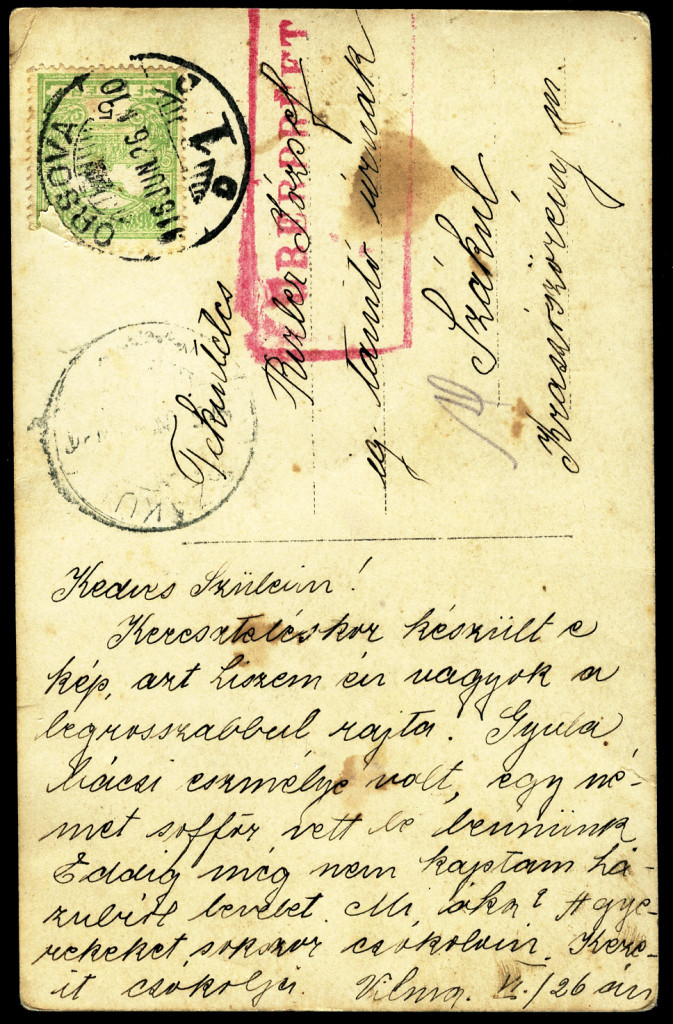 ORSOVA
916 JUN. 26
ÜBERPRÜFT
ZÁKU
Tekintetes
Rizler József
ig. tanító úrnak
Szákul
Krassószörény m.
Kedves Szüleim!
Kereszteléskor készült e
kép, azt hiszem én vagyok a
legrosszabbul rajta. Gyula
bácsi eszmélye volt, egy né-
met soffőr vett le bennünk
Eddig még nem kaptam há-
zulról levelet. Mi oka? A gye-
rekeket sokszor csókolom. Keze-
it csókolja. Vilma. VI./26 án